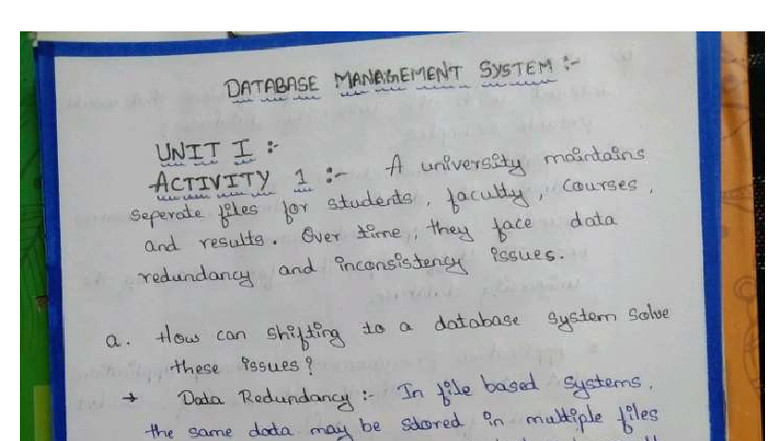 DATABASE MANAGEMENT SYSTEM :-
UNIT I :-
ACTIVITY 1 :- A university maintains
seperate files for students, faculty, courses,
and results. Over time, they face data
redundancy and inconsistency issues.
a. How can shifting to a database system solve
these issues?
→ Data Redundancy :- In file based systems,
the same data may be stored in multiple files